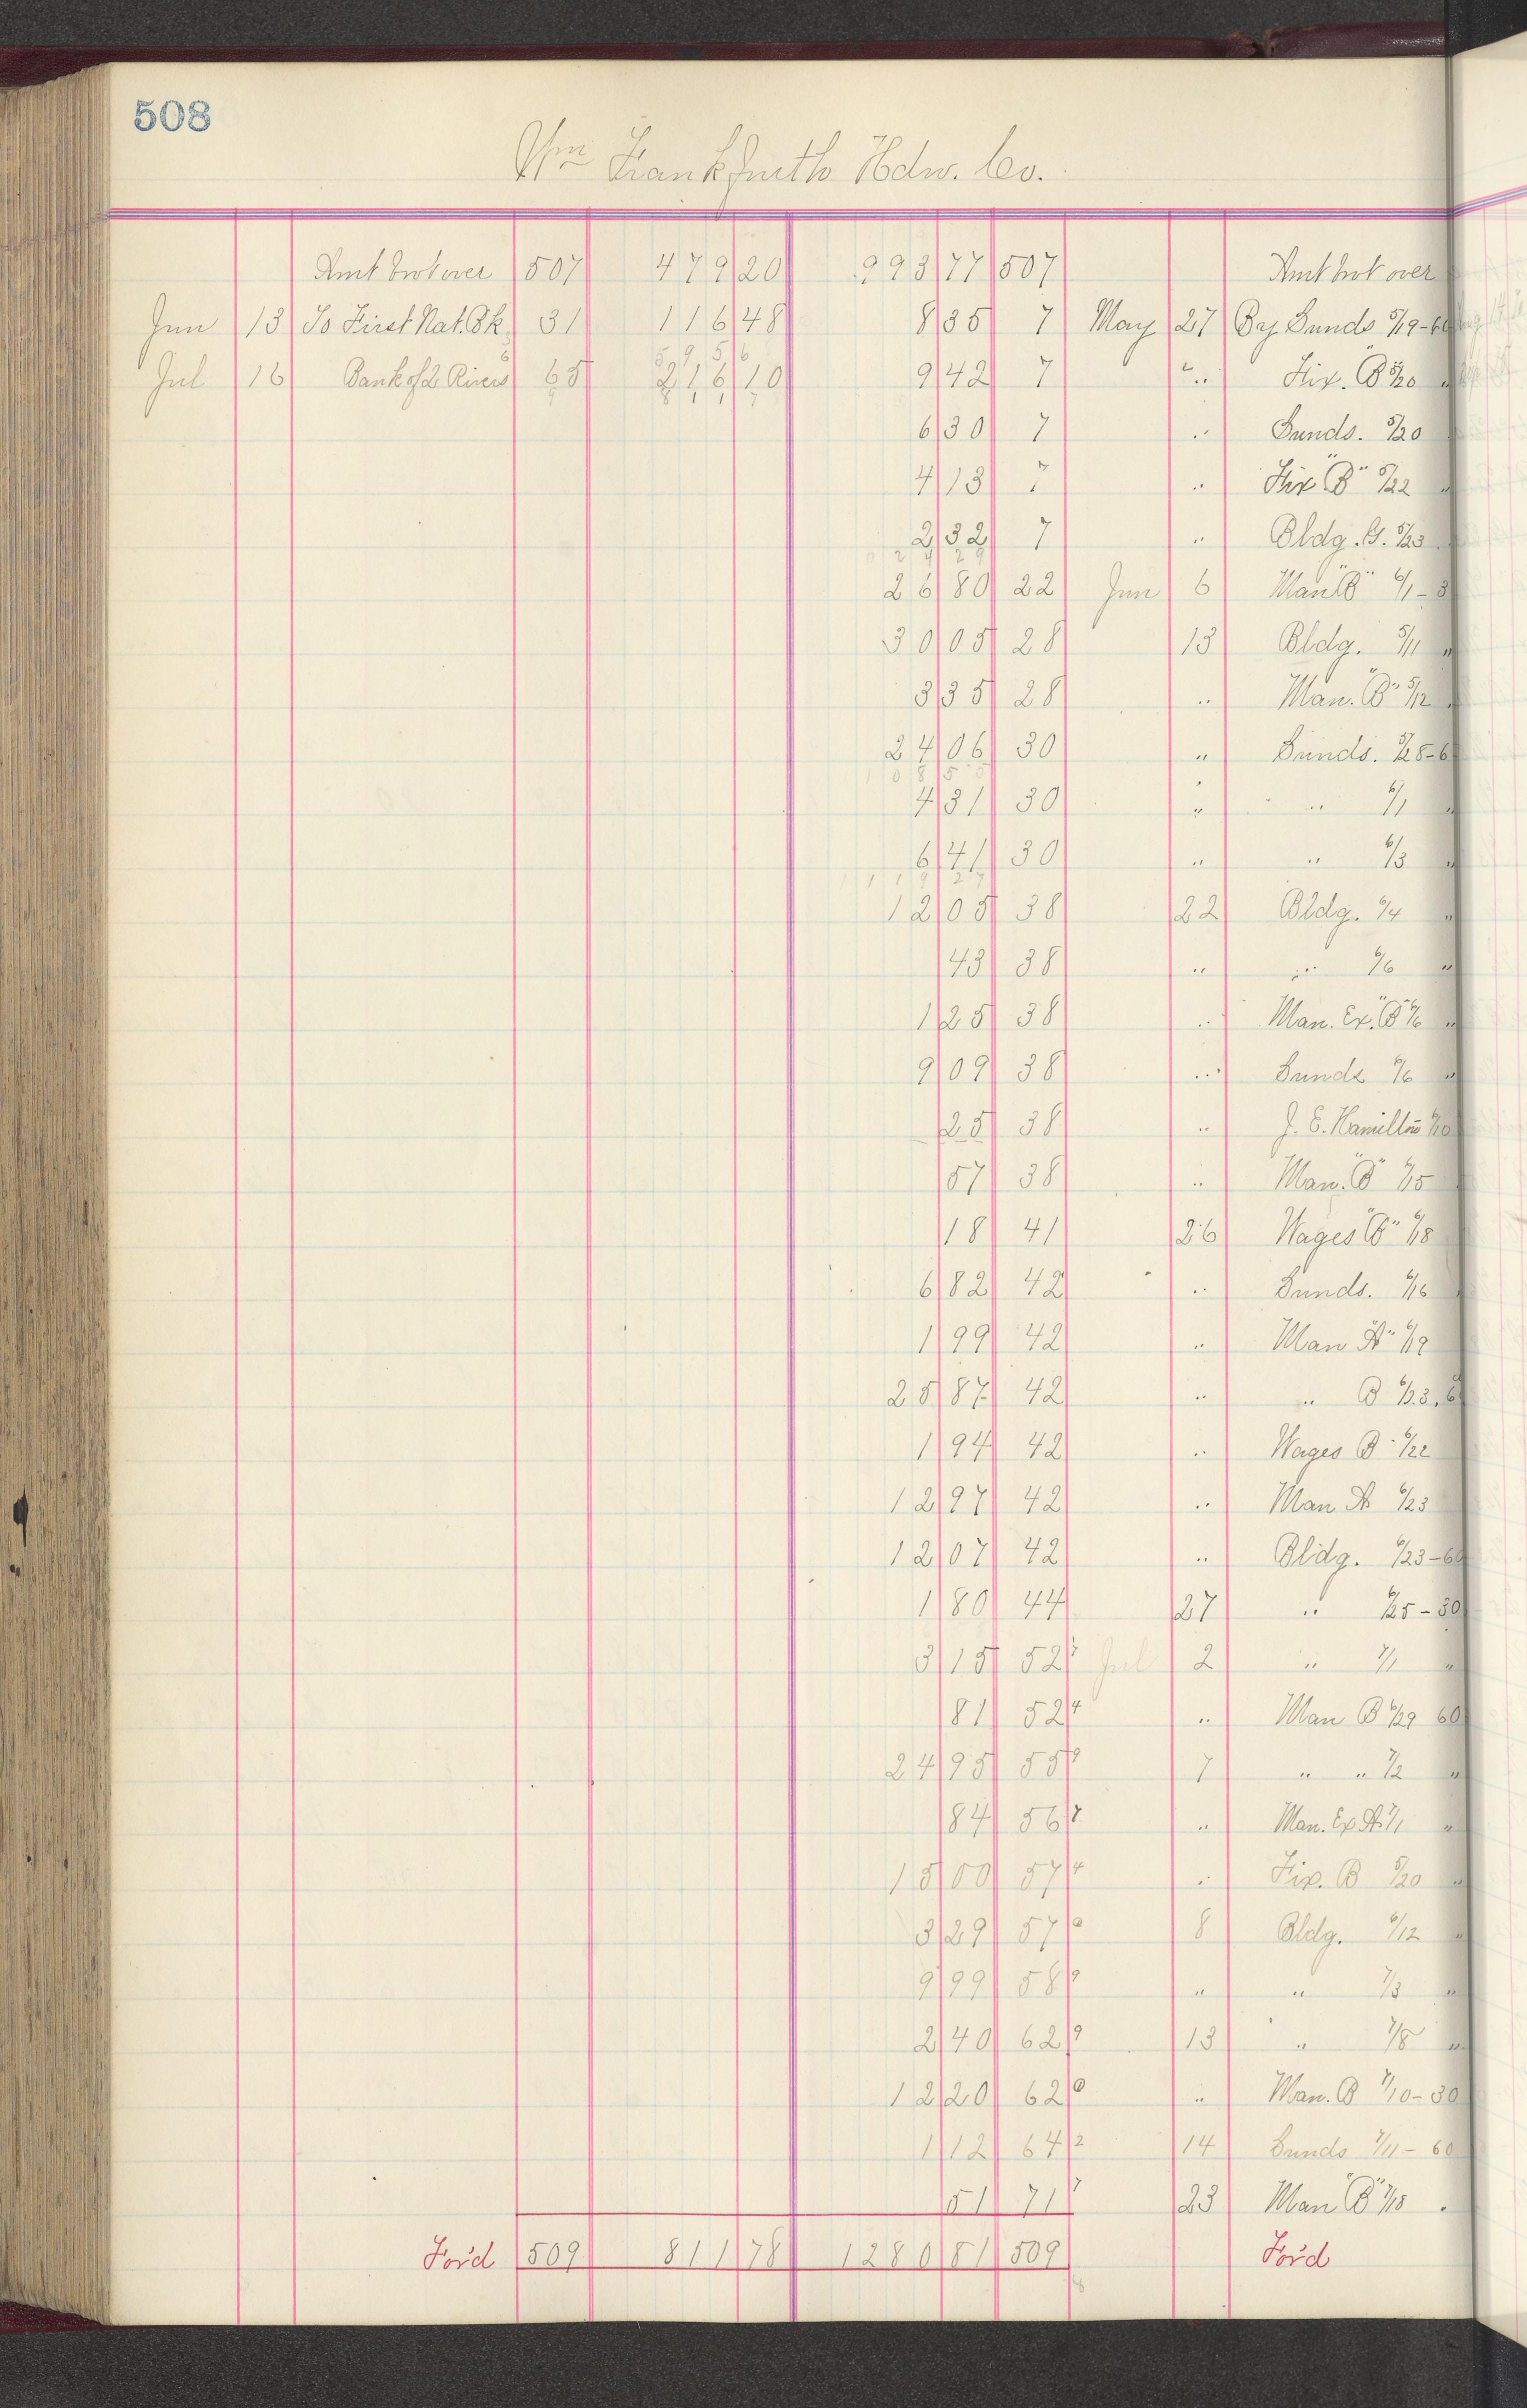 508
Wm Frankfurth Hdw. Co.
Amt brot over 507 479 20 993 77 507 Amt brot over
Jun 13 To First Nat. Bk. 31 116 48 8 35 7 May 27 By Sunds 5/19-60
5 9 5 6
Jul 16 Bank of 2 Rivers 65 216 10 9 42 7 " Fix. "B" 5/20 "
6 30 7 " Sunds. 5/20
4 13 7 " Fix "B" 5/22 "
2 32 7 " Bldg. G. 5/23
26 80 22 Jun 6 Man "B" 6/1-3
30 05 28 13 Bldg. 5/11 "
3 35 28 " Man. "B" 5/12
24 06 30 " Sunds. 5/25-6
4 31 30 " " 6/1 "
6 41 30 " " 6/3 "
12 05 38 22 Bldg. 6/4 "
43 38 " " 6/6 "
1 25 38 " Man. Ex. "B" 6/6 "
9 09 38 " Sunds 6/6 "
25 38 " J. E. Hamilton 6/10
57 38 " Man. "B" 6/15
18 41 26 Wages "B" 6/18
6 82 42 " Sunds. 6/16
1 99 42 " Man "A" 6/19
25 87 42 " " B 6/23,6
1 94 42 " Wages B 6/22
12 97 42 " Man A 6/23
12 07 42 " Bldg. 6/23-60
1 80 44 27 " 6/25-30
3 15 52 7 Jul 2 " 7/1 "
81 52 4 " Man B 6/29 60
24 95 55 9 7 " " 7/2 "
84 56 7 " Man. Ex A. 7/1 "
15 00 57 4 " Fix. B 5/20 "
3 29 57 0 8 Bldg. 6/12 "
9 99 58 9 " " 7/3 "
2 40 62 9 13 " 7/8 "
12 20 62 0 " Man. B 7/10-30
1 12 64 2 14 Sunds 7/11-60
51 71 7 23 Man "B" 7/18 "
For'd 509 811 78 1280 81 509 For'd